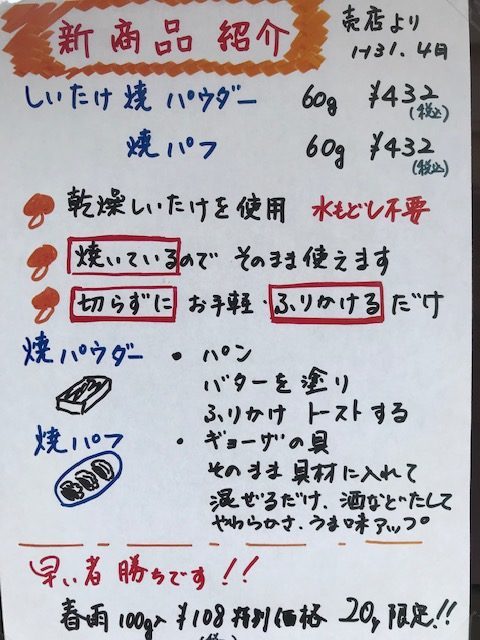 新商品紹介
売店より
H31.4月
しいたけ焼パウダー 60g ¥432(税込)
焼パフ 60g ¥432(税込)
乾燥しいたけを使用 水もどし不要
焼いているので そのまま使えます
切らずに お手軽・ふりかけるだけ
焼パウダー ・ パン
バターを塗り
ふりかけ トーストする
焼パフ ・ ギョーザの具
そのまま具材に入れて
混ぜるだけ、酒などたして
やわらかさ、うま味アップ。
早い者勝ちです!!
春雨 100g入 ¥108 特別価格 20 限定!!